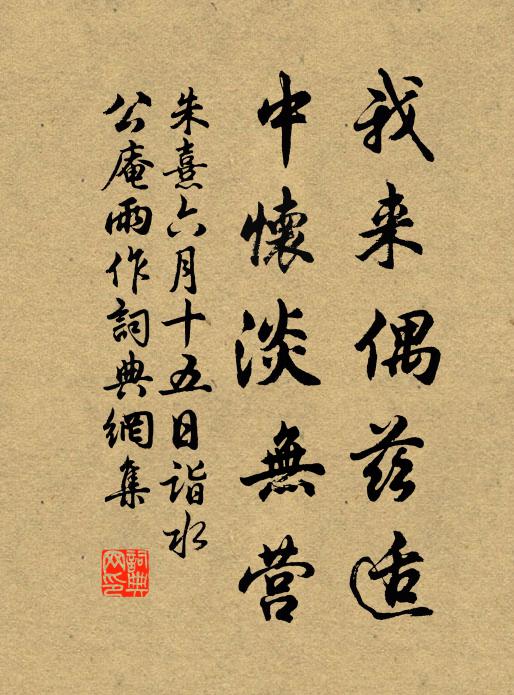 我来偶兹适
中懷淡無营
朱熹六月十五日诣水
公庵雨作詞典網集
詞典
网印